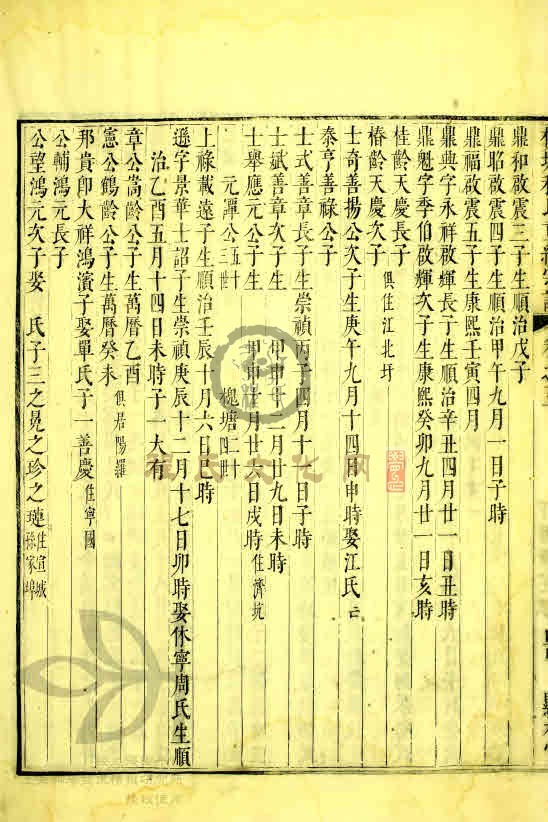 鼎和啟震三子生順治戊子
鼎昭啟震四子生順治甲午九月一日子時
鼎福啟震五子生康熙壬寅四月
鼎典字永祥啟輝長子生順治辛丑四月廿一日丑時
鼎魁字季伯啟輝次子生康熙癸卯九月廿一日亥時
桂齡天慶長子
椿齡天慶次子 俱住江北圩
士奇善揚公次子生庚午九月十四日申時娶江氏
泰亨善祿公子
士式善章長子生崇禎丙子四月十一日子時
士斌善章次子生 甲申十二月廿九日未時
士舉應元公子生 甲申十月廿六日戌時住濟坑
元譚公五十三世 槐塘四世
上祿載遠子生順治壬辰十月六日巳時
遜字景華士詔子生崇禎庚辰十二月十七日卯時娶休寧周氏生順
治乙酉五月十四日未時子一大有
章公嵩齡公子生萬曆乙酉
憲公鶴齡公子生萬曆癸未 俱居陽羅
邦貴卽大祥鴻濱子娶單氏子一善慶住寧國
公輔鴻元長子
公望鴻元次子娶 氏子三之晃之珍之璉住宣城孫家埠